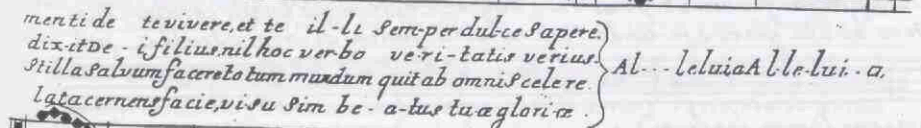 menti de te vivere, et te il-li sem-per dul-ce sapere.
dix-it De-i filius, nil hoc ver-bo ve-ri-tatis verius.
stilla salvum facere totum mundum quit ab omni scelere.
la ta cernens facie, visu sim be-a-tus tuæ glori-æ.
Al---leluia Al-le-lui-a.